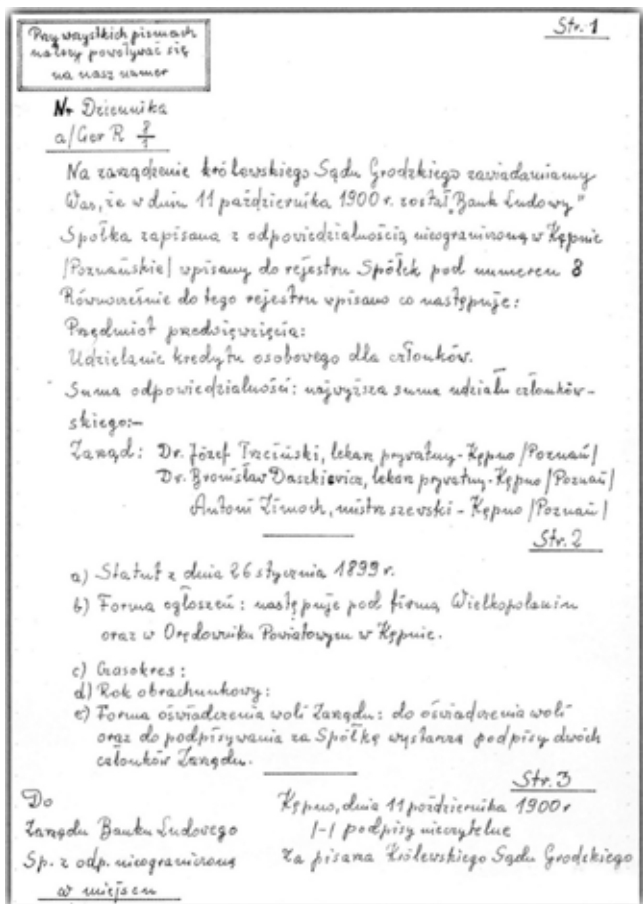 Str. 1
Przy wszystkich pismach
należy powoływać się
na nasz numer
Nr Dziennika
a/Ger R 8/1
Na zarządzenie królewskiego Sądu Grodzkiego zawiadamiamy
Was, że w dniu 11 października 1900 r. został „Bank Ludowy"
Spółka zapisana z odpowiedzialnością nieograniczoną w Kępnie
/Poznańskie/ wpisany do rejestru Spółek pod numerem 8
Równocześnie do tego rejestru wpisano co następuje:
Przedmiot przedsięwzięcia:
Udzielanie kredytu osobowego dla członków.
Suma odpowiedzialności: najwyższa suma udziału członkow-
skiego:-
Zarząd: Dr. Józef Trzciński, lekarz prywatny - Kępno /Poznań/
Dr. Bronisław Daszkiewicz, lekarz prywatny - Kępno /Poznań/
Antoni Zimoch, mistrz szewski - Kępno /Poznań/
Str. 2
a) Statut z dnia 26 stycznia 1899 r.
b) Forma ogłoszeń: następuje pod firmą Wielkopolanin
oraz w Orędowniku Powiatowym w Kępnie.
c) Czasokres:
d) Rok obrachunkowy:
e) Forma oświadczenia woli Zarządu: do oświadczenia woli
oraz do podpisywania za Spółkę wystarczą podpisy dwóch
członków Zarządu.
Str. 3
Do
Zarządu Banku Ludowego
Sp. z odp. nieograniczoną
w miejscu
Kępno, dnia 11 października 1900 r
/-/ podpisy nieczytelne
Za pisarza Królewskiego Sądu Grodzkiego